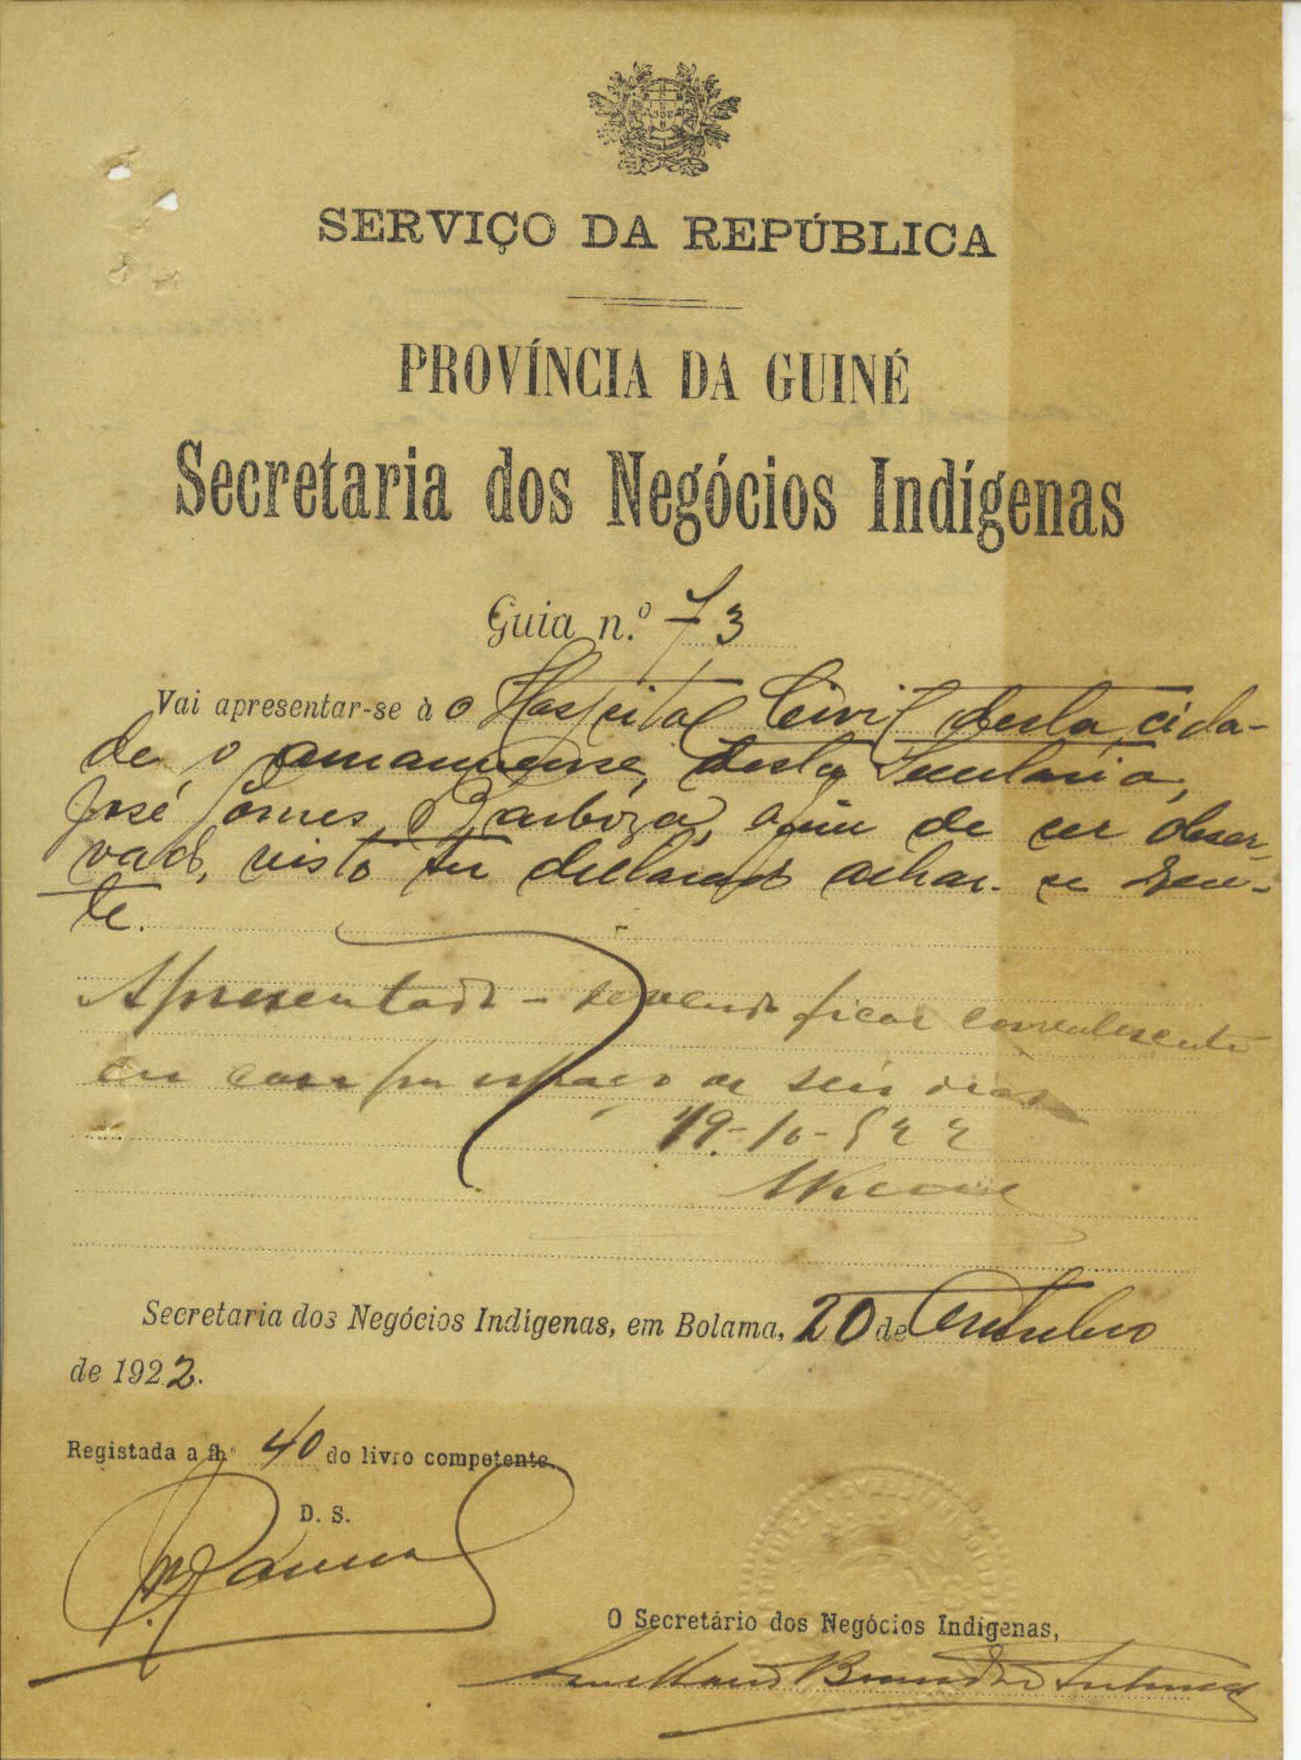 SERVIÇO DA REPÚBLICA
PROVÍNCIA DA GUINÉ
Secretaria dos Negócios Indígenas
Guia n.º 73
Vai apresentar-se à o Hospital Civil desta cida-
de o amanuense, desta Secretaria,
José Gomes Barbóza, afim de ser obser-
vado, visto ter declarado achar-se doen-
te.
Apresentado - devendo ficar convalescente
em casa por espaço de seis dias
19-10-922
Secretaria dos Negócios Indígenas, em Bolama, 20 de Outubro
de 1922.
Registada a fls 40 do livro competente.
D. S.
O Secretário dos Negócios Indígenas,